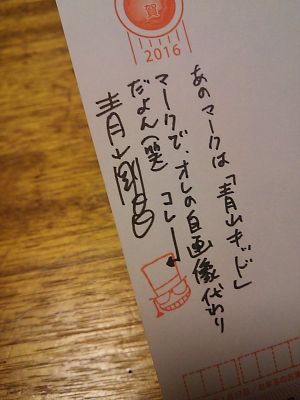 賀
2016
あのマークは「青山キッド」
マークで、オレの自画像代わり
だよん(笑) コレ
青山剛昌